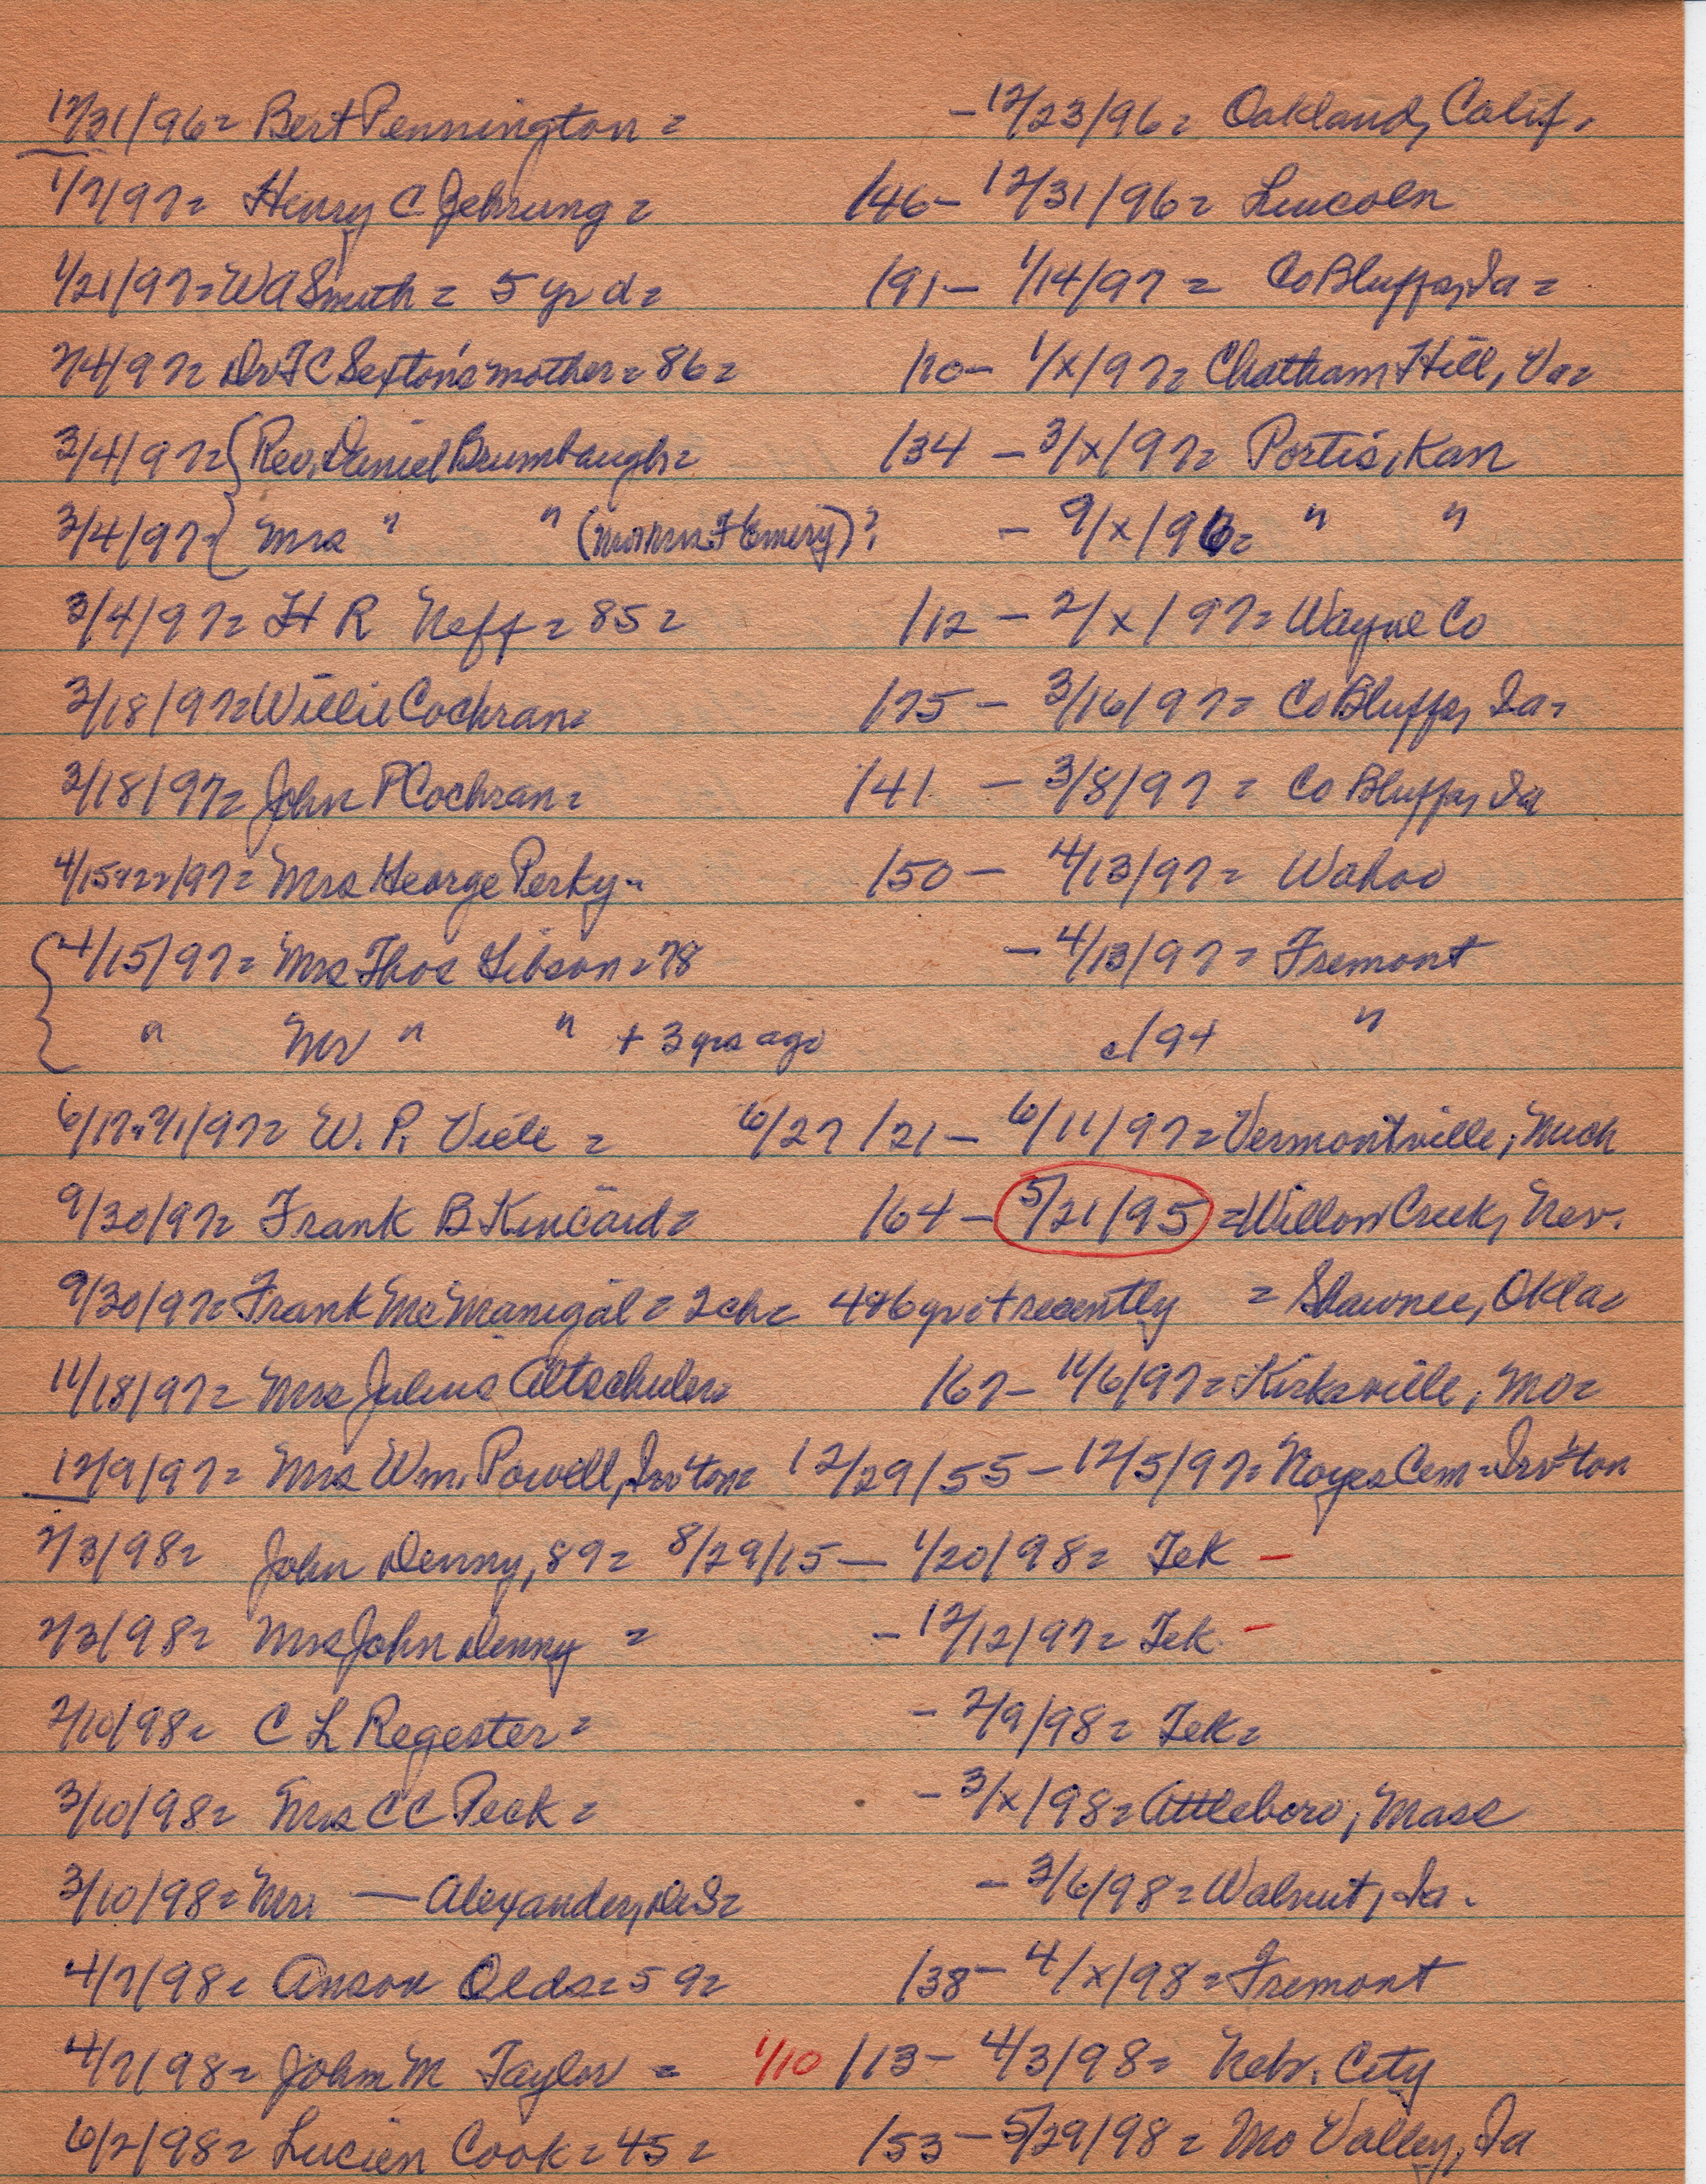 12/31/96= Bert Pennington = - 12/23/96= Oakland, Calif.
1/7/97= Henry C Gehrung = /46- 12/31/96= Lincoln
1/21/97= WA Smith = 5 yr d= /91- 1/14/97 = Co Bluffs, Ia =
2/4/97= Dr IC Sexton's mother= 86= /10- 1/x/97= Chatham Hill, Va=
3/4/97= Rev. Daniel Brumbaugh= /34 - 3/x/97= Portis, Kan
3/4/97= Mrs " " ( Mrs F Emery)? - 9/x/96= " "
3/4/97= H R Neff = 85= /12 - 2/x/97= Wayne Co
3/18/97= Willie Cochran= /75 - 3/16/97= Co Bluffs, Ia=
3/18/97= John P Cochran= /41 - 3/8/97= Co Bluffs, Ia
4/15+22/97= Mrs George Perky- /50- 4/13/97= Wahoo
4/15/97= Mrs Thos Gibson=78 - 4/13/97= Fremont
" Mr " " + 3 yrs ago c/94 "
6/17+7/1/97= W. P. Viele = 6/27/21- 6/11/97= Vermontville, Mich
9/30/97= Frank B Kincaid= /64- 5/21/95 = Willow Creek, Nev.
9/30/97= Frank McManigal= 2 ch= 4+6 yrs + recently = Shawnee, Okla=
11/18/97= Mrs Julius Altschuler= /67- 11/6/97= Kirksville, Mo=
12/9/97= Mrs Wm. Powell, Irv'ton= 12/29/55- 12/5/97= Noyes Cem- Irv'ton
2/3/98= John Denny, 89= 8/29/15 - 1/20/98= Tek -
2/3/98= Mrs John Denny = - 12/12/97= Tek -
2/10/98= C L Regester= - 2/9/98= Tek=
3/10/98= Mrs CC Peck= - 3/x/98= Attleboro, Mass
3/10/98= Mr. — Alexander, = - 3/6/98= Walnut, Ia.
4/7/98= Anson Olds= 59= /38- 4/x/98= Fremont
4/7/98= John M Taylor = 1/10/13- 4/3/98= Nebr. City
6/2/98= Lucien Cook= 45= /53- 5/29/98= Mo Valley, Ia